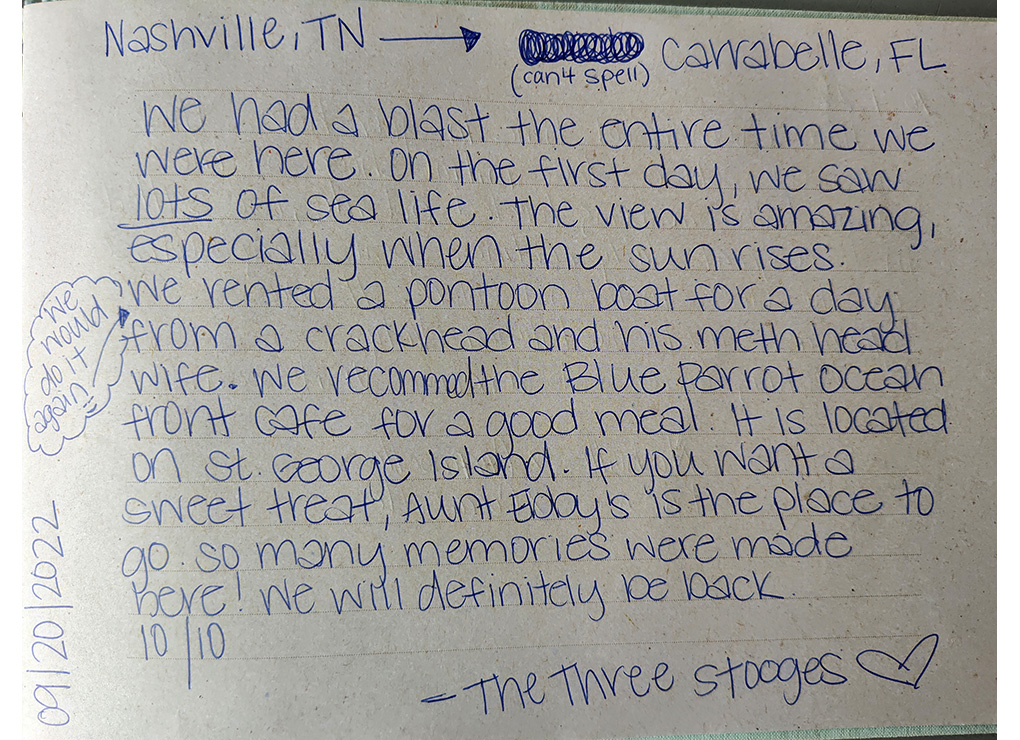 Nashville, TN → Carrabelle, FL
(can't spell)
We had a blast the entire time we
were here. On the first day, we saw
lots of sea life. The view is amazing,
especially when the sun rises.
We rented a pontoon boat for a day
from a crackhead and his meth head
wife. We recommed the Blue Parrot ocean
front cafe for a good meal. It is located
on St. George Island. If you want a
sweet treat, Aunt Ebby's is the place to
go. So many memories were made
here! We will definitely be back.
10/10
- The Three Stooges ♡
we
would
do it
again
09/20/2022